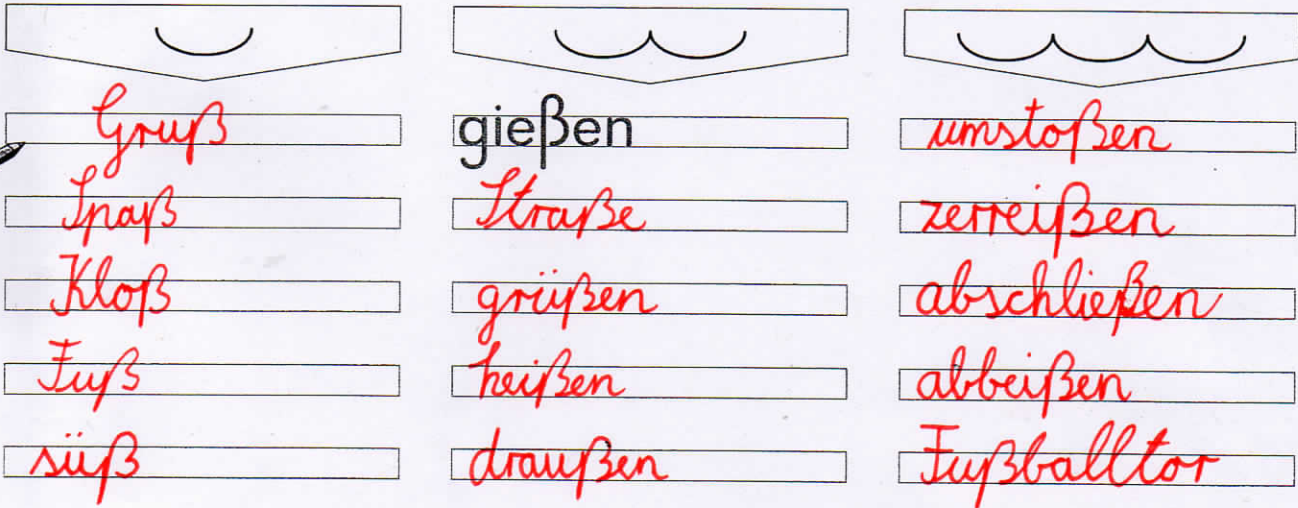 Gruß
Spaß
Kloß
Fuß
süß
gießen
Straße
grüßen
heißen
draußen
umstoßen
zerreißen
abschließen
abbeißen
Fußballtor